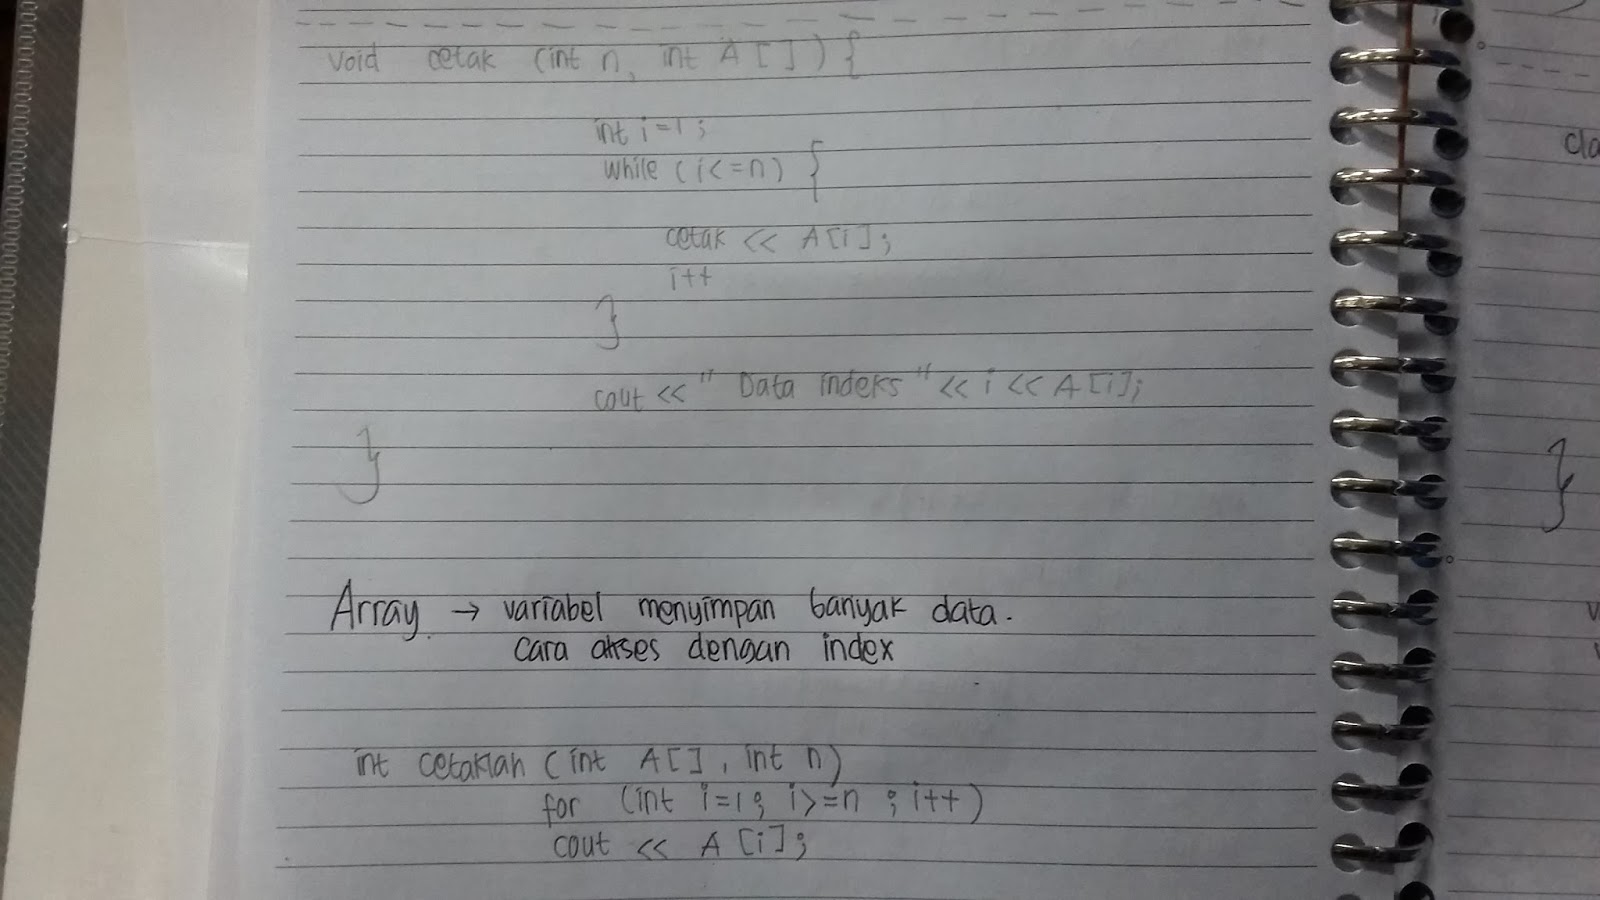 void cetak (int n, int A []) {
int i=1;
while (i<=n) {
cetak << A[i];
i++
}
cout << " Data indeks " << i << A[i];
}
Array → variabel menyimpan banyak data.
cara akses dengan index
int cetaklah (int A[], int n)
for (int i=1; i>=n ; i++)
cout << A [i];
}